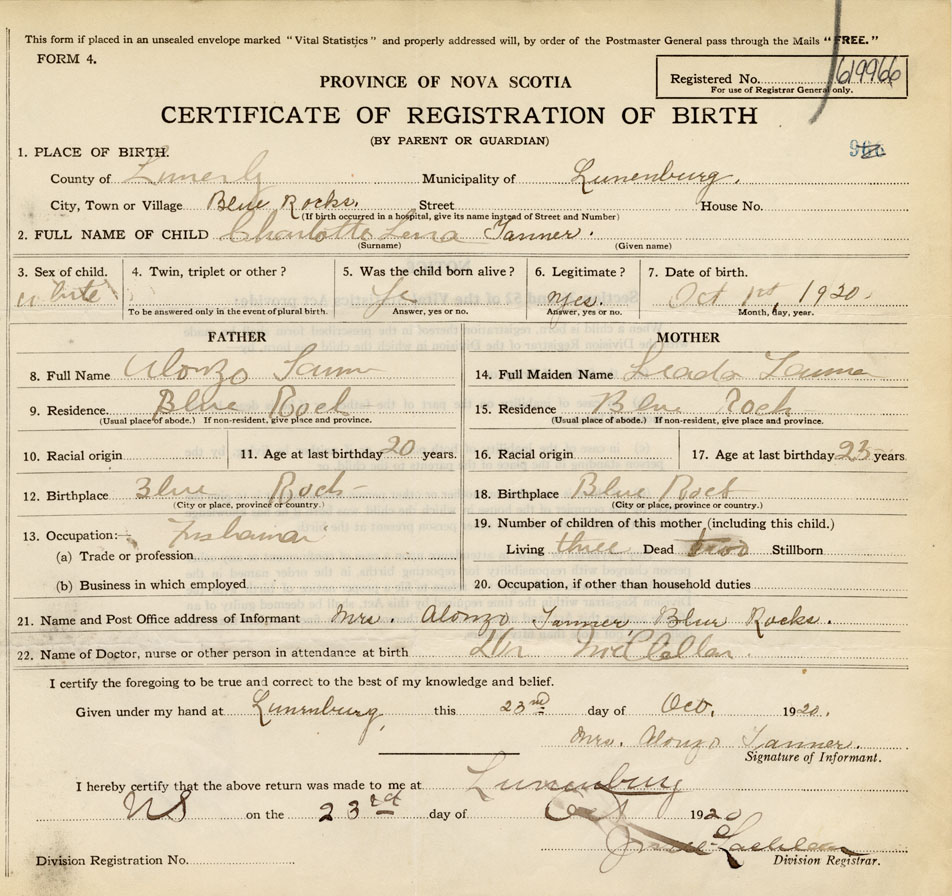 This form if placed in an unsealed envelope marked "Vital Statistics" and properly addressed will, by order of the Postmaster General pass through the Mails "FREE."
FORM 4.
Registered No. 619966
For use of Registrar General only.
PROVINCE OF NOVA SCOTIA
CERTIFICATE OF REGISTRATION OF BIRTH
(BY PARENT OR GUARDIAN)
1. PLACE OF BIRTH.
County of Municipality of Lunenburg.
City, Town or Village Blue Rocks. Street House No.
(If birth occurred in a hospital, give its name instead of Street and Number)
2. FULL NAME OF CHILD Charlotte Lena Tanner.
(Surname) (Given name)
3. Sex of child. 4. Twin, triplet or other? 5. Was the child born alive? 6. Legitimate? 7. Date of birth.
white Ye yes. Oct 1st, 1920.
To be answered only in the event of plural birth. Answer, yes or no. Answer, yes or no. Month, day, year.
FATHER MOTHER
8. Full Name Alonzo 14. Full Maiden Name Leada
9. Residence. Blue Rock 15. Residence Blue Rock
(Usual place of abode.) If non-resident, give place and province. (Usual place of abode.) If non-resident, give place and province.
10. Racial origin 11. Age at last birthday 20 years. 16. Racial origin 17. Age at last birthday 23 years
12. Birthplace Blue Rock 18. Birthplace Blue Rock
(City or place, province or country.) (City or place, province or country.)
13. Occupation:— 19. Number of children of this mother (including this child.)
(a) Trade or profession Living three Dead two Stillborn
(b) Business in which employed 20. Occupation, if other than household duties
21. Name and Post Office address of Informant Mrs. Alonzo Tanner, Blue Rocks.
22. Name of Doctor, nurse or other person in attendance at birth
I certify the foregoing to be true and correct to the best of my knowledge and belief.
Given under my hand at Lunenburg this 23nd day of Oct. 1920.
Mrs. Alonzo Tanner.
Signature of Informant.
I hereby certify that the above return was made to me at Lunenburg
NS on the 23rd day of Oct 1920
Division Registration No. Division Registrar.